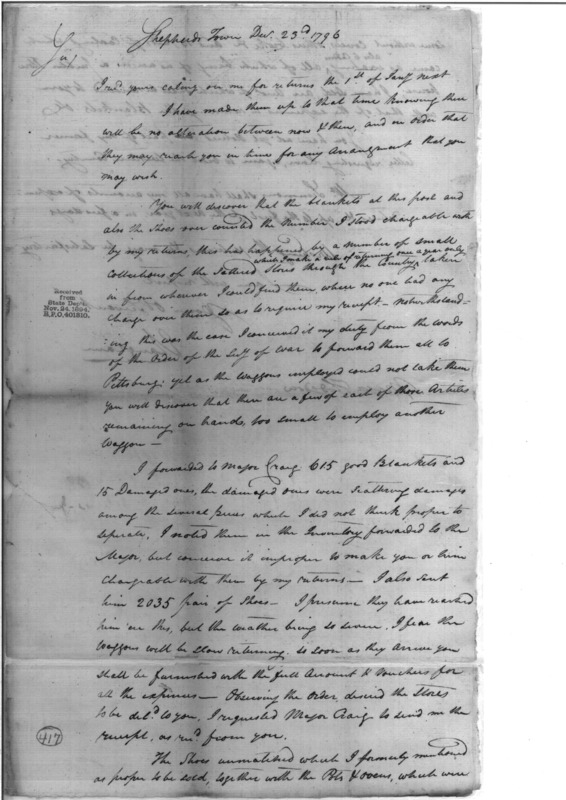 Shepherds Town Decr. 23d 1796
Sir,
I recd. yours calling on me for returns the 1st of Jany next
I have made them up to that time Knowing there
will be no alteration between now & then, and in order that
they may reach you in time for any Arrangment that you
may wish.
You will discover that the blankets at this post and
also the Shoes over counted the number I stood chargeable with
by my returns, this has happened by a number of small
which I make a rule of returning once a year only
collections of the Scattered Stores through the Country, taken
in from whoever I could find them, where no one had any
charge over them so as to require my receipt – notwithstand-
Received
from
State Dep't
Nov. 24, 1894.
R.P.O. 401810.
:ing this was the case I conceived it my duty from the words
of the Order of the Secy of War to forward them all to
Pittsburg: yet as the waggons employed could not take them
you will discover that there are a few of each of those Articles
remaining on hands, too small to employ another
Waggon –
I forwarded to Major Craig 615 good Blankets and
15 Damaged ones, the damaged ones were Scattering damages
among the several which I did not think proper to
seperate, I noted them in the Inventory forwarded to the
Major, but conceive it improper to make you or him
chargeable with them by my returns – I also sent
him 2035 pair of Shoes – I presume they have reached
him ere this, but the weather being so severe I fear the
Waggons will be slow returning. so soon as they arrive you
shall be furnished with the full Amount & Vouchers for
all the expenses – Observing the order desired the Stores
to be deld. to you, I requested Major Craig to send me the
receipt, as recd. from you.
417
The Shoes unmatched which I formerly mentioned
as proper to be sold, together with the Pots & ovens, which were